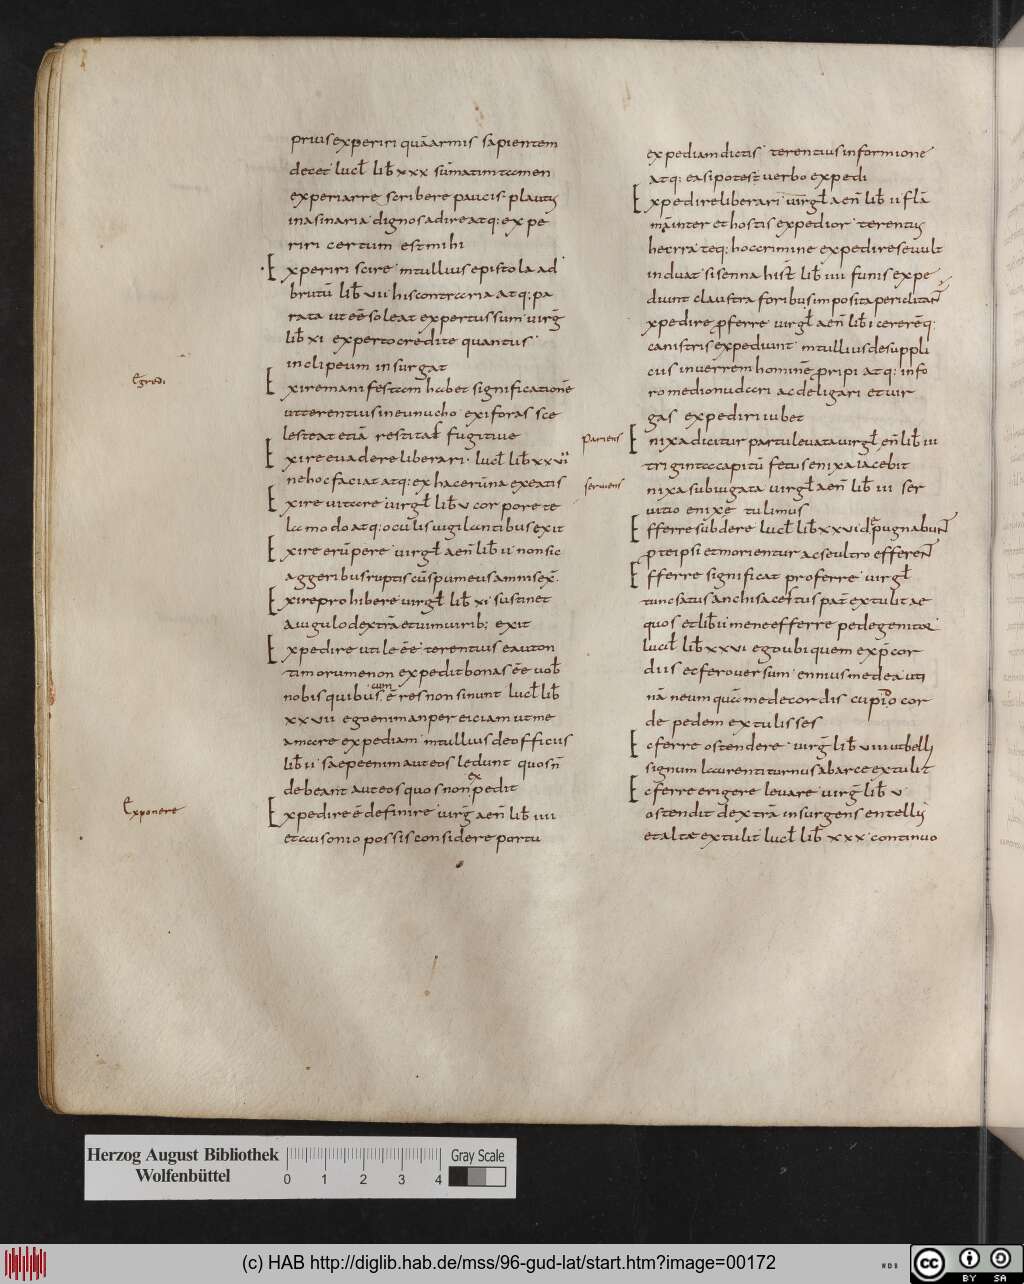 prius experiri quā armis sapientem
decet lucł lib̄ xxx sūmatim tamen
experiar re scribere paucis plautꝰ
in asinaria dignos adire atq: expe
riri certum est mihi
Experiri scire m tullius epistola ad
brutū lib̄ viii his contraria atq: pa
rata ut eē soleat expertus sum virḡ
lib̄ xi experto credite quantus
in clipeum insurgat
Exire manifestam habet significationē
ut terentius in eunucho exi foras sce
leste at etiā restitat fugitive
Exire evadere liberari lucł lib̄ xxvii
ne hoc faciat atq: ex hac erūna exeatis
Exire vitare virgł lib̄ v corpore te
la modo atq: oculis vigilantibus exit
Exire erūpere virgł aen̄ lib̄ ii non sic
aggeribus ruptis cū spumeus amnis ex.
Exire prohibere virgł lib̄ xi sustinet
a vigulo dextrā et vim virib; exit
Expedire utile eē terentius eauton
timorumenon expedit bonas eē vob̄
nobis quibus cum ē res non sinunt lucł lib̄
xxvii ego enim an pereiciam ut me
amare expediam m tullius de officiis
lib̄ ii saepe enim aut eos ledunt quos n̄
debeant aut eos quos non expedit
Expedire ē definire virḡ aen̄ lib̄ iiii
et ausonio possis considere portu
Egredi
Exponere
expediam dictis terentius in formione
atq: ea si potest verbo expedi
Expedire liberari virgł aen̄ lib̄ ii flā
māinter et hostis expedior terentꝰ
hecrra teq: hoc crimine expedire se vult
induat sisenna hist̄ lib̄ iiii funis expe
diunt claustra foribus imposita periclitant̄
xpedire p̄ferre virgł aen̄ lib̄ i cererēq:
canistris expediunt m tullius de suppli
ciis in verrem hominē p̄ripi atq: in fo
ro medio nudari ac deligari et vir
gas expediri iubet
Enixa dicitur partu levata virgł ęn̄ lib̄ iii
triginta capitū fetus enixa iacebit
nixa subiugata virgł aen̄ lib̄ iii ser
vitio enixe tulimus
Efferre sūbdere lucł lib̄ xxvi depugnabunt̄
p te ipsi et morientur ac se ultro efferent̄
Efferre significat proferre virgł
tunc satus anchisa cestus pater̄ extulit ae
quos et lib̄ ii mene efferre pedegenitor
lucił lib̄ xxvi ego ubi quem exp̄cor
diis ecfero versum ennius medea uti
nā ne umquā mede cordis cupido cor
de pedem extulisses
Ecferre ostendere virḡ lib̄ viii ut belli
signum laurenti turnus ab arce extulit
Ecferre erigere levare virḡ lib̄ v
ostendit dextrā insurgens entellꝰ
et alta extulit lucł lib̄ xxx continuo
Pariens
serviens
Herzog August Bibliothek
Wolfenbüttel
0 1 2 3 4
Gray Scale
(c) HAB http://diglib.hab.de/mss/96-gud-lat/start.htm?image=00172
WDB
cc BY SA